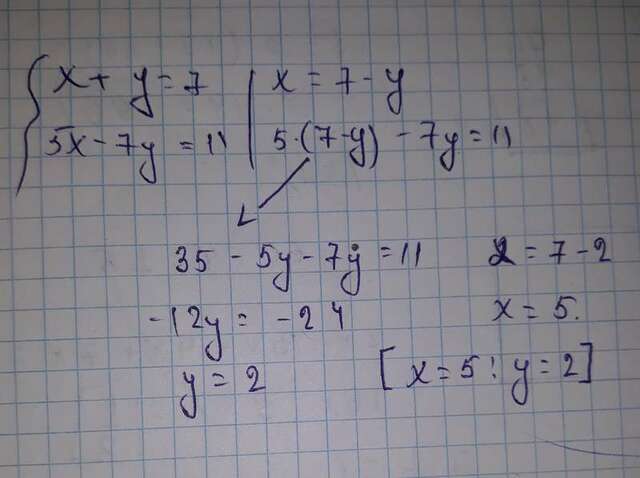 x + y = 7 | x = 7 - y
5x - 7y = 11 | 5·(7-y) - 7y = 11
35 - 5y - 7y = 11
-12y = -24
y = 2
x = 7 - 2
x = 5.
[x = 5; y = 2]